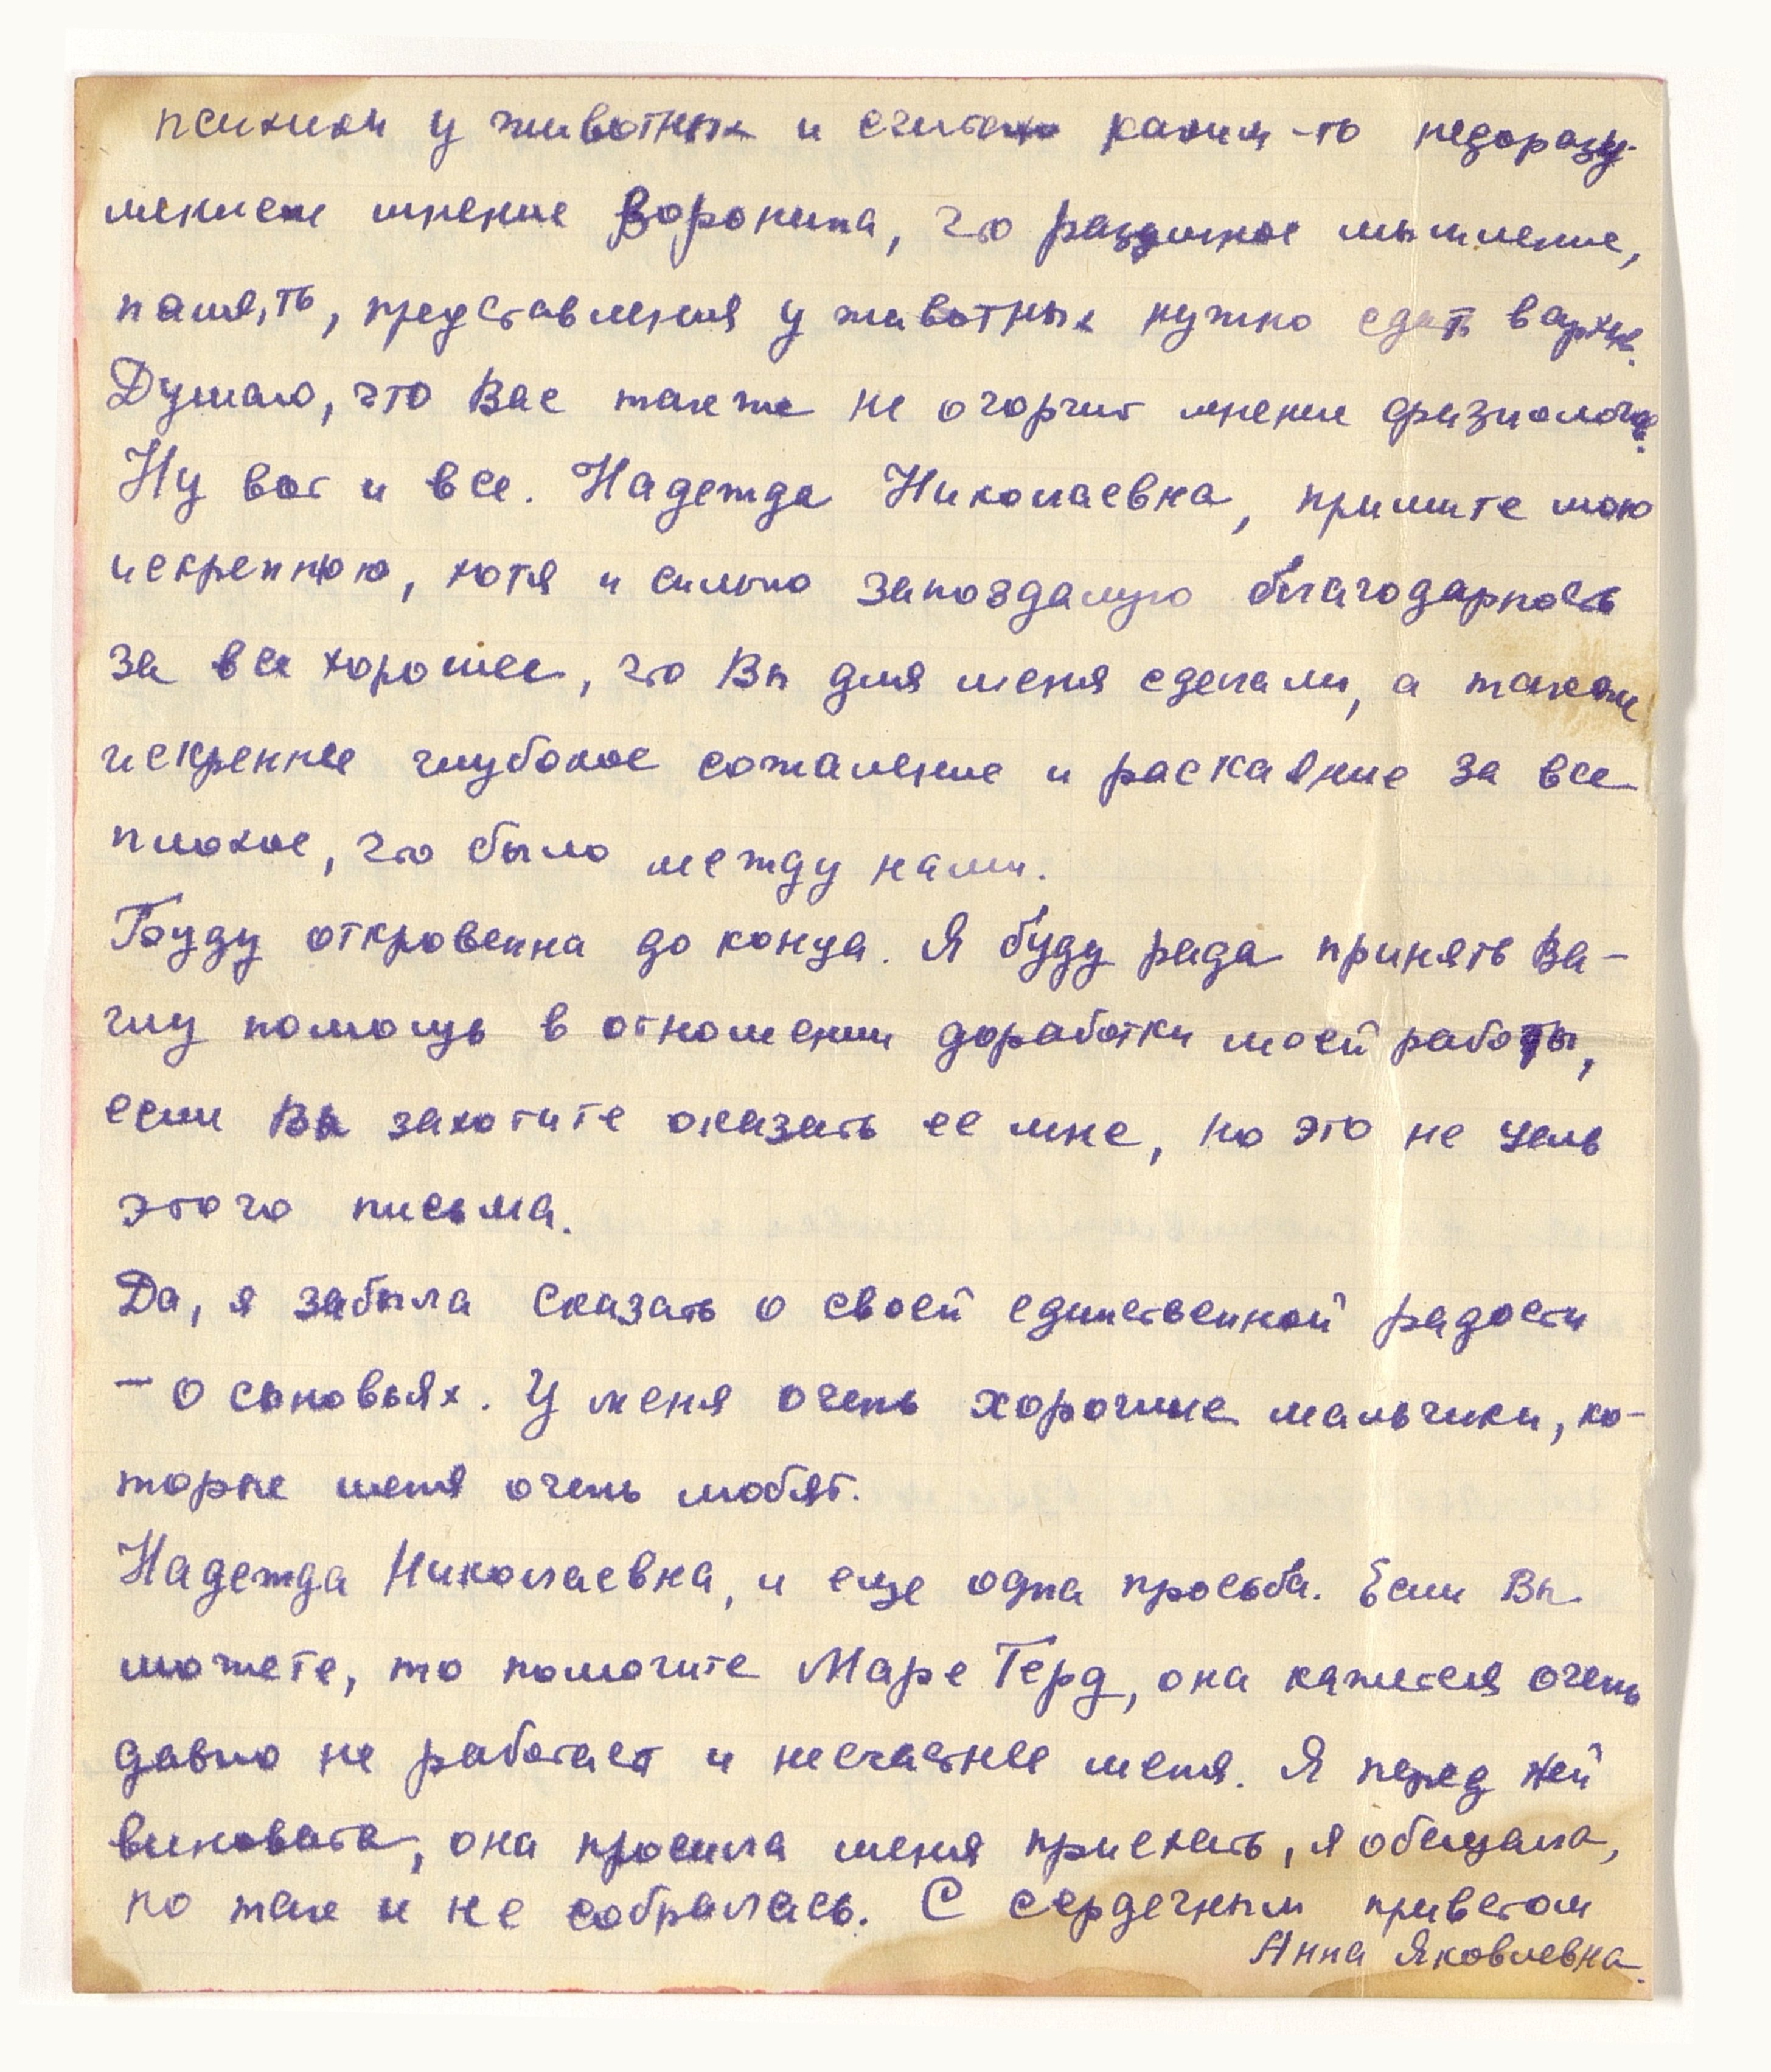 психики у животных и считаю каким-то недоразу-
мением мнение Воронина, что разумное мышление,
память, представления у животных нужно сдать в архив.
Думаю, что Вас также не огорчит мнение физиолога.
Ну вот и все. Надежда Николаевна, примите мою
искреннюю, хотя и сильно запоздалую благодарность
за все хорошее, что Вы для меня сделали, а также
искреннее глубокое сожаление и раскаяние за все
плохое, что было между нами.
Буду откровенна до конца. Я буду рада принять Ва-
шу помощь в отношении доработки моей работы,
если Вы захотите оказать ее мне, но это не цель
этого письма.
Да, я забыла сказать о своей единственной радости
– о сыновьях. У меня очень хорошие мальчики, ко-
торые меня очень любят.
Надежда Николаевна, и еще одна просьба. Если Вы
можете, то помогите Маре Герд, она кажется очень
давно не работает и несчастнее меня. Я перед ней
виновата, она просила меня приехать, я обещала,
но так и не собралась. С сердечным приветом
Анна Яковлевна.